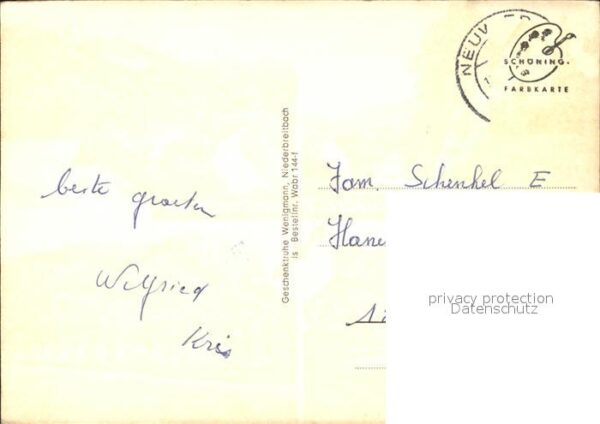 beste groeten
Wilfried
Kris
Geschenktruhe Wenigmann, Niederbreitbach
is Bestellnr. Wabr 144-f
NEUW
SCHÖNING
FARBKARTE
Fam. Schenkel E
Hane
privacy protection
Datenschutz